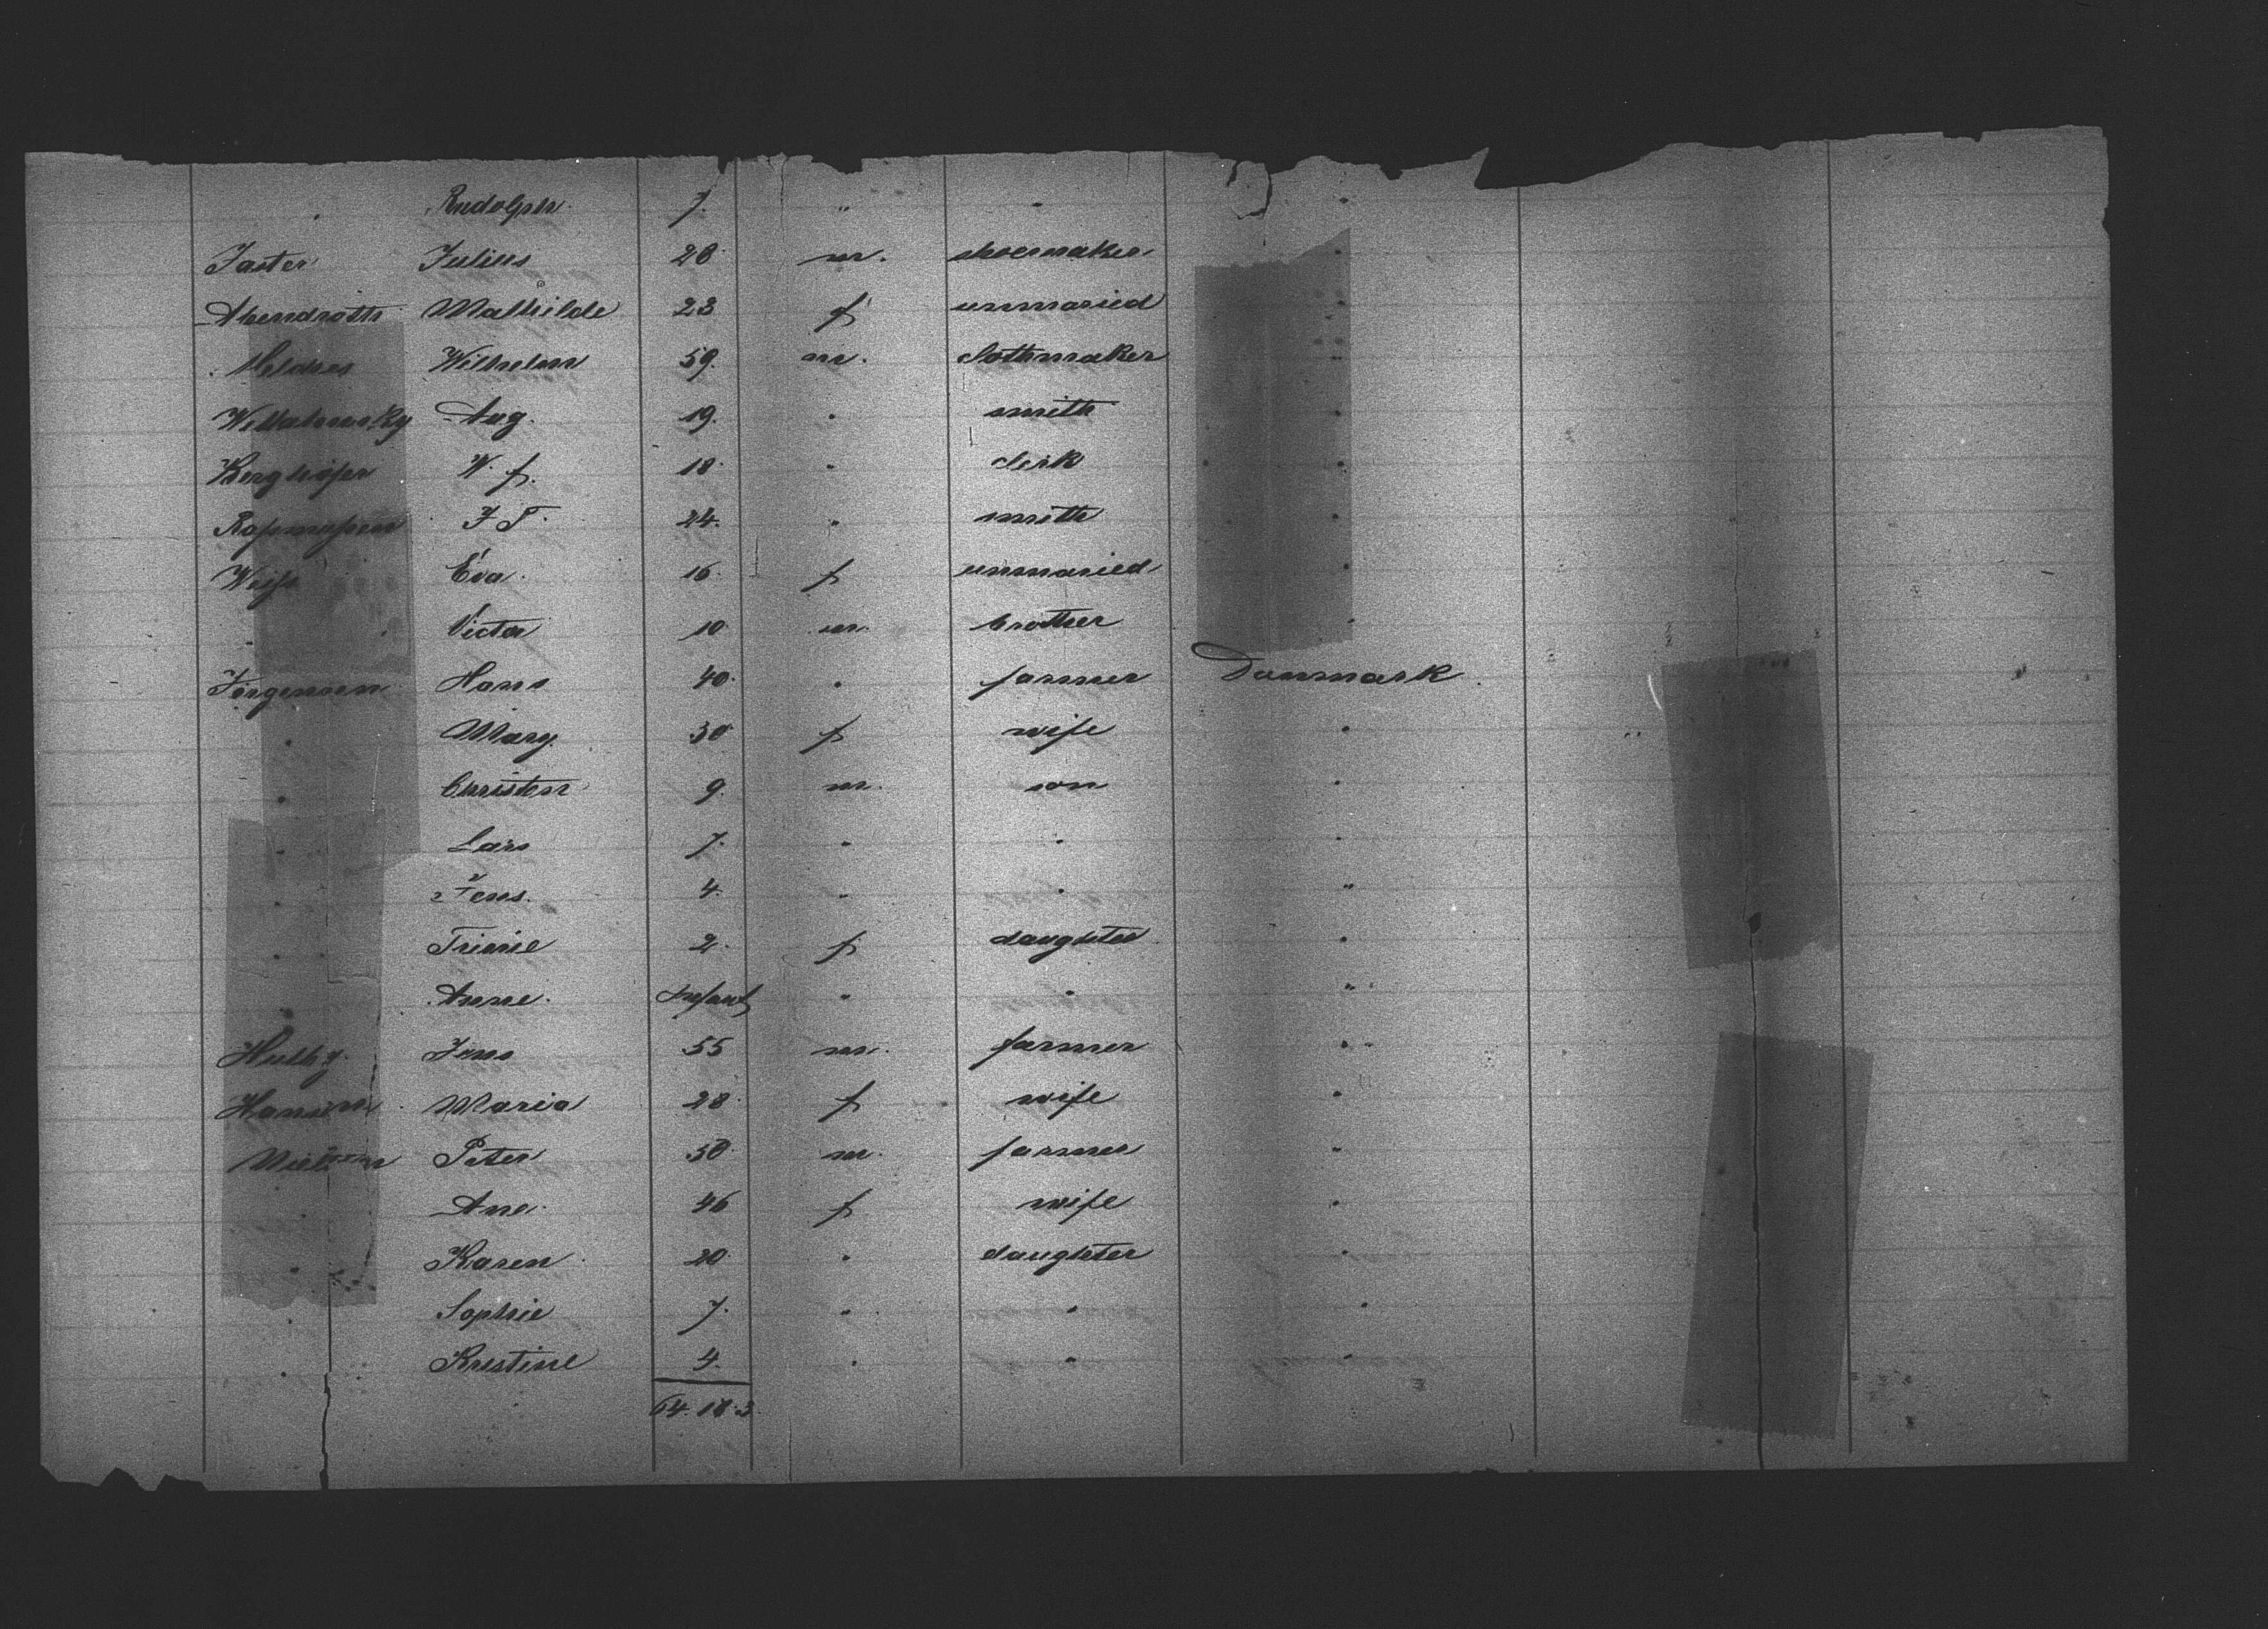 " Rudolph 7. " " "
Jaster Julius 28. m. shoemaker "
Abendroth Mathilde 23 f unmaried "
Wilhelm 59. m. clothmaker "
Aug. 19. " smith "
Berghöfer W. f. 18. " clerk "
Rassmussen J T. 24. " smith "
Weiss Eva. 16. f unmaried "
" Victor 10. m. brother "
Jörgensen Hans 40. " farmer Danmark.
" Mary. 30 f wife "
" Christen 9. m. son "
" Lars 7. " " "
" Jens. 4. " " "
" Triene 2. f daughter "
" Anne. Infant " " "
Hulby. Jens 55 m. farmer "
Hansen Maria 28. f wife "
Nielsen Peter 50. m. farmer "
" Ane. 46 f wife "
" Karen 20. " daughter "
" Sophie 7. " " "
" Kristine 4. " " "
64. 18. 3.